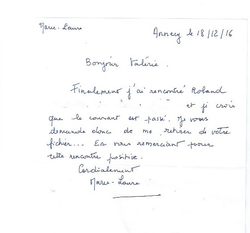 Marie-Laure
Annecy le 18/12/16
Bonjour Valérie.
Finalement j'ai rencontré Roland
et je crois
que le courant est passé. Je vous
demande donc de me retirer de votre
fichier... En vous remerciant pour
cette rencontre positive.
Cordialement
Marie-Laure